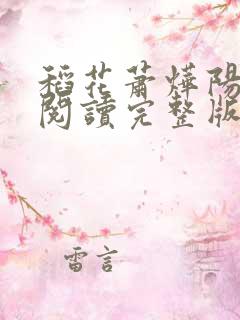 稻花蕭燁陽
閱讀完整版
雷言